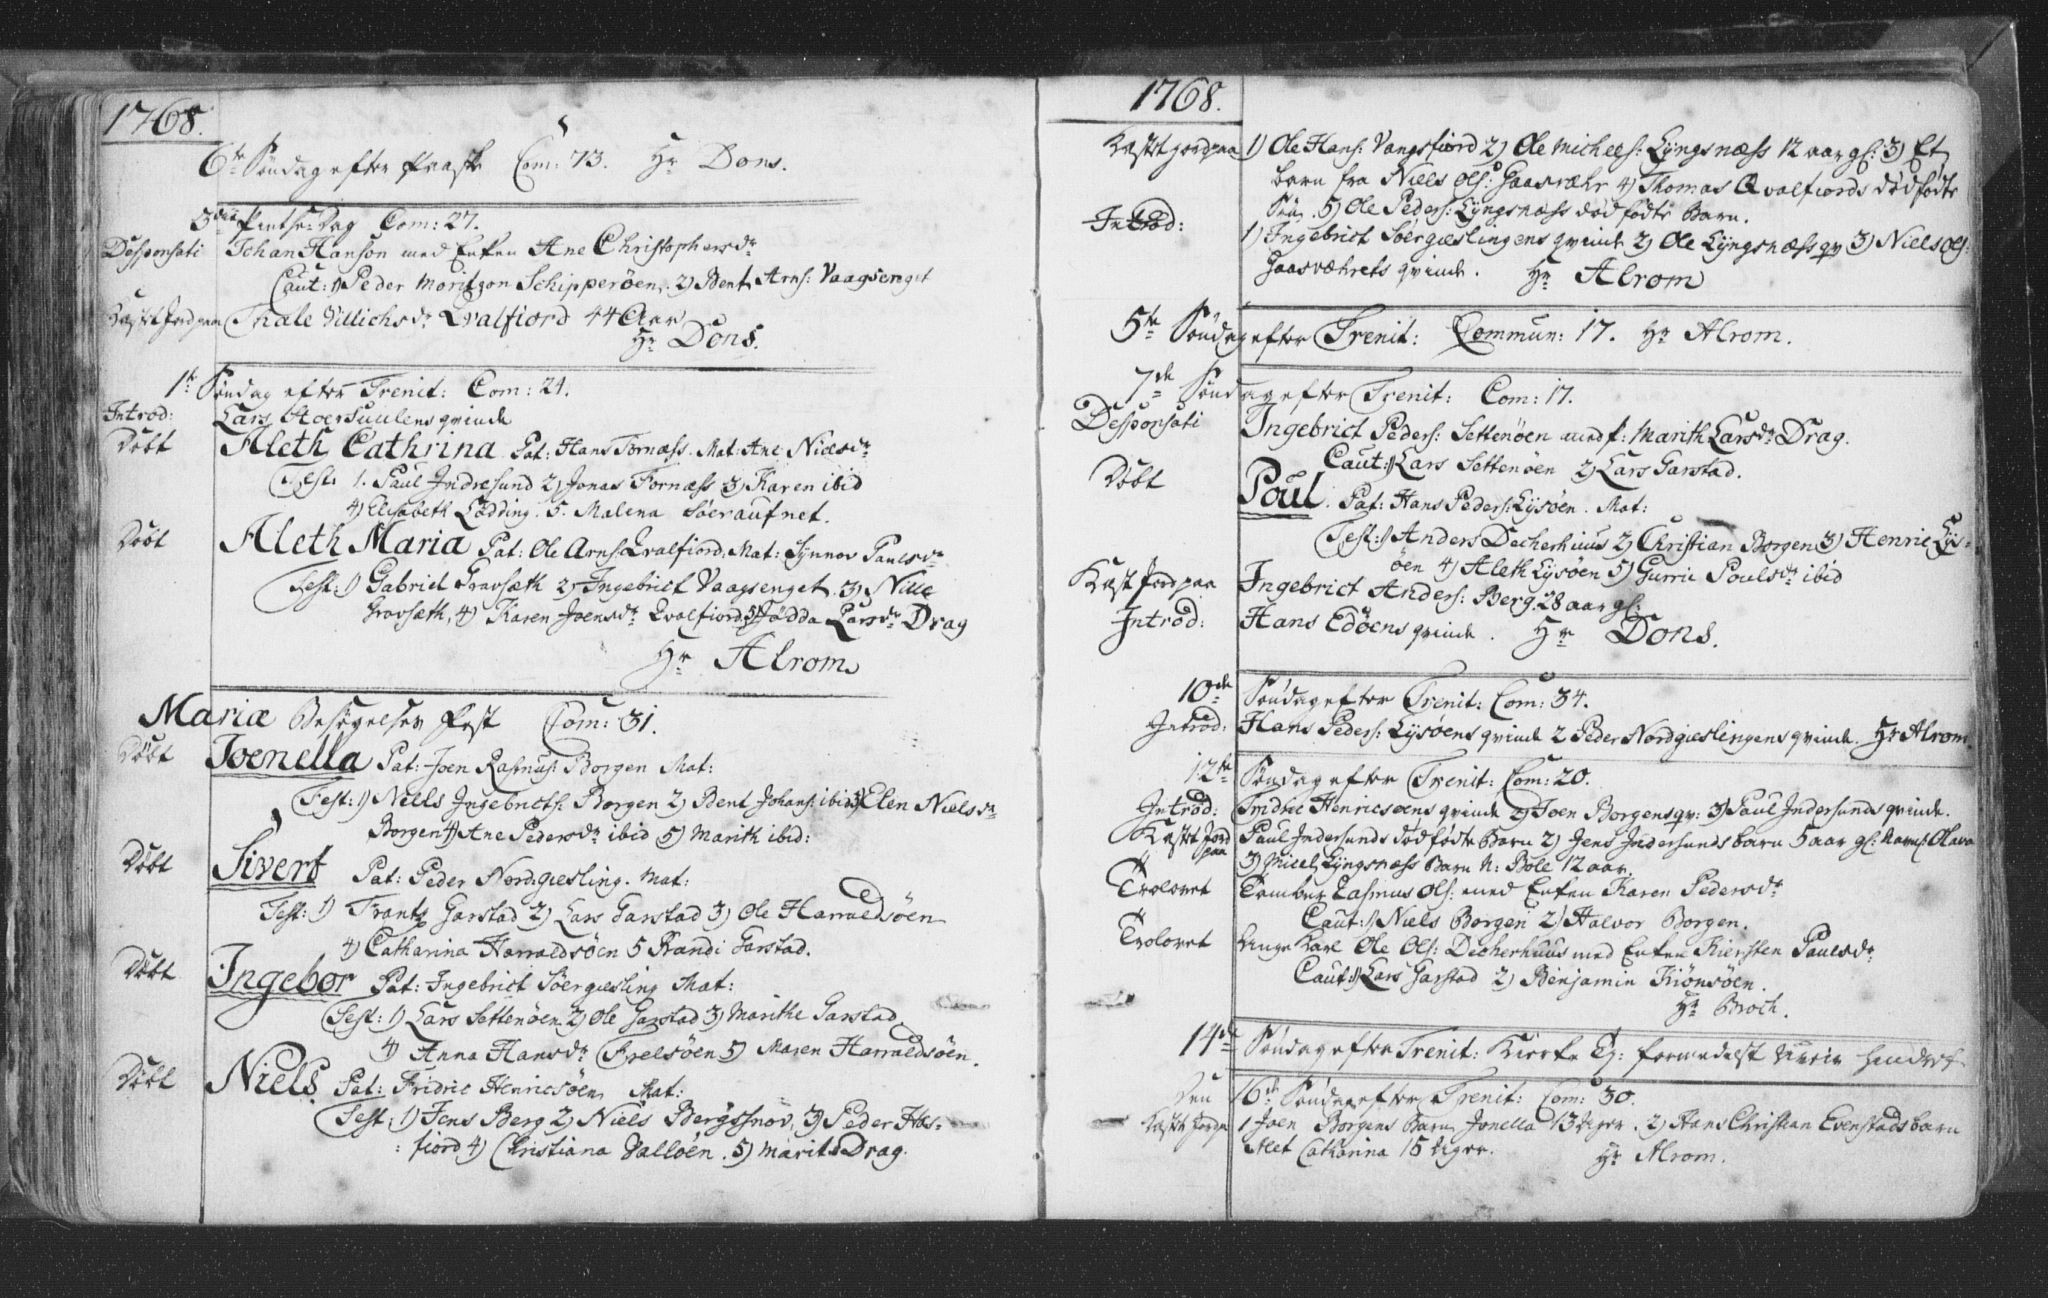 1768.
6te Søndag efter Paaske Com: 73. Hr Dons.
3die Pintse-Dag Com: 27.
Desponsati Johan Hanson med Enken Ane Christophersdr
Caut: 1) Peder Moritzon Schipperöen, 2) Bent Arns: Vaagsenget
Kastet Jord paa Thale Villichsdr Qvalfiord 44 Aar
Hr Dons.
1te Søndag efter Trenit: Com: 24.
Introd: Lars Hoersuulens qvinde
Døbt Aleth Cathrina Pat: Hans Tornæss. Mat: Ane Nielsdr
Test: 1. Paul Indresund 2) Jonas Tornæss 3) Karen ibid
4) Elisabeth Lødding. 5. Malena Søeraufnet.
Døbt Aleth Maria Pat: Ole Arns: Qvalfiord. Mat: Synnov Paulsdr
Test: 1) Gabriel Gravsæth 2) Ingebrict Vaagsenget. 3) Nille
Gravsæth, 4) Karen Joensdr Qvalfiord, 5) Jødda Larsdr Drag
Hr Alrom
Mariæ Besøgelses Fest Com: 31.
Døbt Joenella Pat: Joen Rasmus: Borgen Mat:
Test: 1) Niels Ingebricts: Borgen 2) Bent Johans: ibid 3) Elen Nielsdr
Borgen 4) Ane Pedersdr ibid 5) Marith ibid:
Døbt Sivert Pat: Peder Nordgiesling. Mat:
Test: 1) Frantz Garstad 2) Lars Garstad 3) Ole Harraldsøen
4) Catharina Harraldsøen 5 Randi Garstad.
Døbt Ingebor Pat: Ingebrict Søergiesling Mat:
Test: 1) Lars Settenøen 2) Ole Garstad 3) Marithe Garstad
4) Anna Hansdr Frelsøen 5) Maren Harraldsøen.
Døbt Niels Pat: Fridric Henricsøen Mat:
Test: 1) Jens Berg 2) Niels Bergssnov, 3) Peder Hos-
fiord 4) Christiana Valløen. 5) Marit Drag.
1768.
Kastet Jord paa 1) Ole Hans: Vangsfiord 2) Ole Michels: Lyngsnæss 12 aar gl: 3) Et
barn fra Niels Ols: Gaasværhr 4) Thomas Qvalfiords dødfødte
Søn. 5) Ole Peders: Lyngsnæss dødfødte Barn.
Introd: 1) Ingebrict Søergieslingens qvinde 2) Ole Lyngsnæss qv 3) Niels Ols:
Gaasværhets qvinde. Hr Alrom
5te Søndag efter Trenit: Commun: 17. Hr Alrom.
7de Søndag efter Trenit: Com: 17.
Desponsati Ingebrict Peders: Settenøen med P: Marith Larsdr Drag.
Caut: 1) Lars Settenøen 2) Lars Garstad.
Døbt Poul. Pat: Hans Peders: Lysøen. Mat:
Test: 1) Anders Decherhuus 2) Christian Borgen 3) Henric Lys-
øen 4) Aleth Lysøen 5) Gurrie Poulsdr ibid
Kast Jord paa Ingebrict Anders: Berg. 28 aar gl:
Introd: Hans Edøens qvinde. Hr Dons.
10de Søndag efter Trenit: Com: 34.
Introd: Hans Peders: Lysøens qvinde 2 Peder Nordgieslingens qvinde. Hr Alrom.
12te Søndag efter Trenit: Com: 20.
Introd: Fridric Henricsøens qvinde 2) Joen Borgens qv: 3) Paul Indersunds qvinde.
Kastet Jord paa Paul Indersunds dødfødte Barn 2) Jens Indersunds barn 5 aar gl: Navnl: Olava
3) Micel Lyngsnæss Barn N: Bole 12 aar.
Trolovet Tambur Rasmus Ols: med Enken Karen Pedersdr
Caut: 1) Niels Borgen 2) Halvor Borgen.
Trolovet Unge Karl Ole Ols: Decherhuus med Enken Kiersten Paulsdr
Caut: 1) Lars Garstad 2) Benjamin Kiønsøen.
Hr Broch.
14de Søndag efter Trenit: Kierke Ej: formedelst Uveir hindret
Den 16de Søndag efter Trenit: Com: 30.
Kastet Jord paa 1 Joen Borgens Barn Jonella 13 uger. 2) Hans Christian Evenstads barn
Alet Catharina 15 Uger. Hr Alrom.